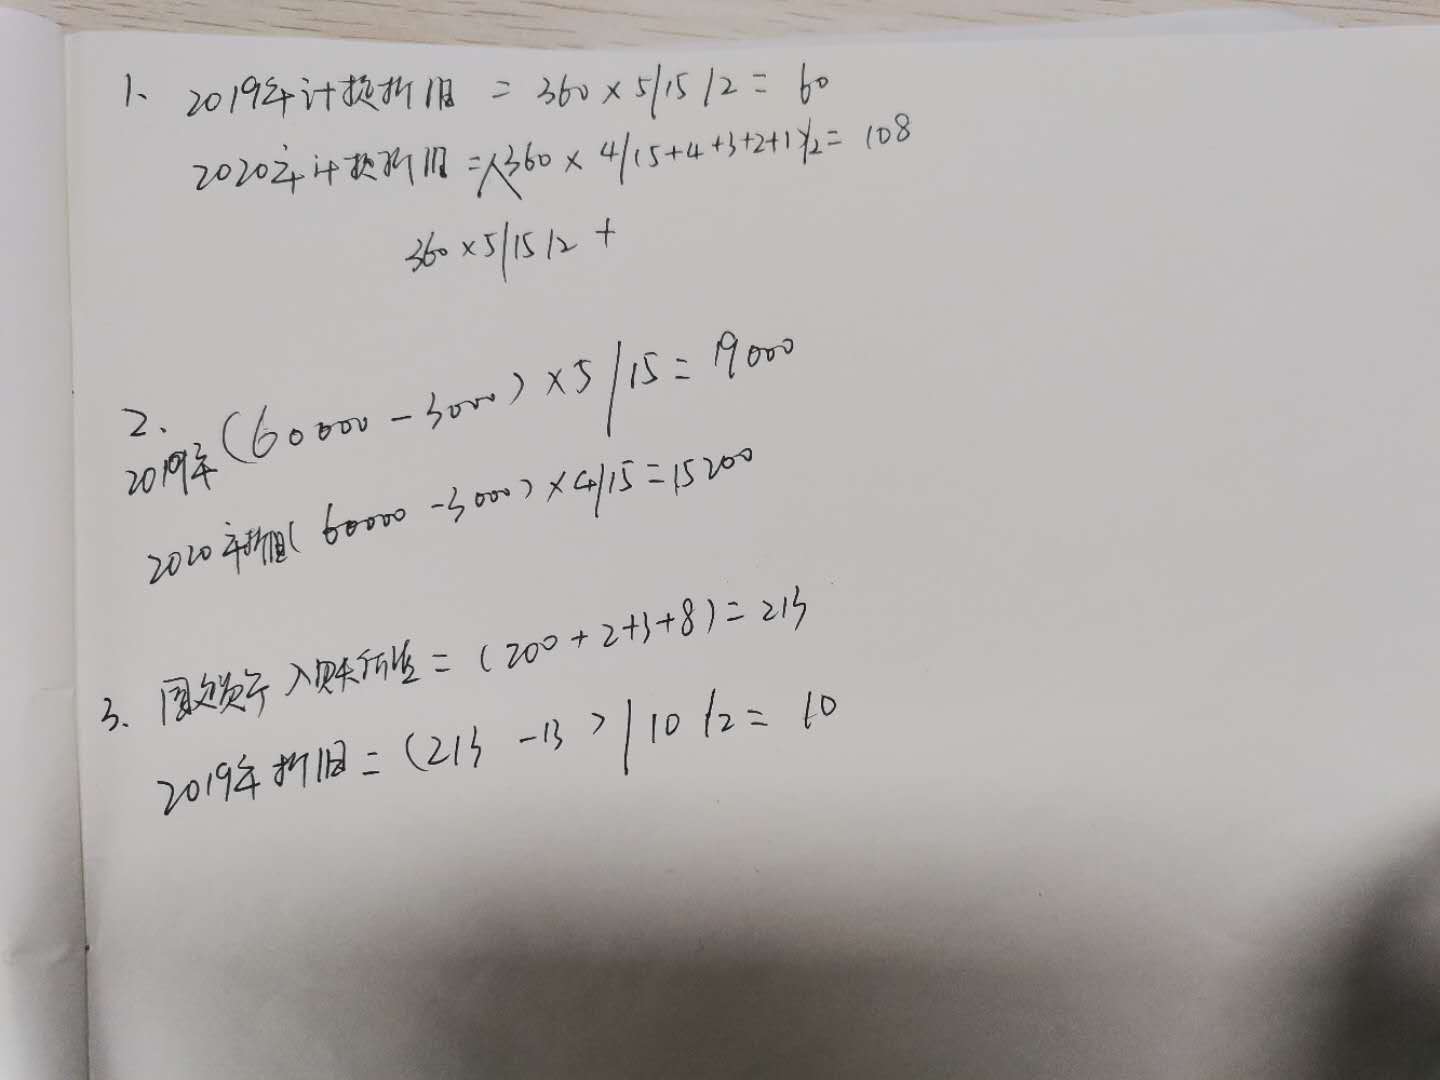 1、 2019年计提折旧 = 360 × 5/15 /2 = 60
2020年计提折旧 = 360 × 4/(5+4+3+2+1)/2 = 108
360 × 5/15 /2 +
2.
2019年 (60000 - 3000) × 5/15 = 19000
2020年折旧 (60000 - 3000) × 4/15 = 15200
3、 固定资产入账价值 = (200 + 2+3+8) = 213
2019年折旧 = (213 - 13) / 10 /2 = 10